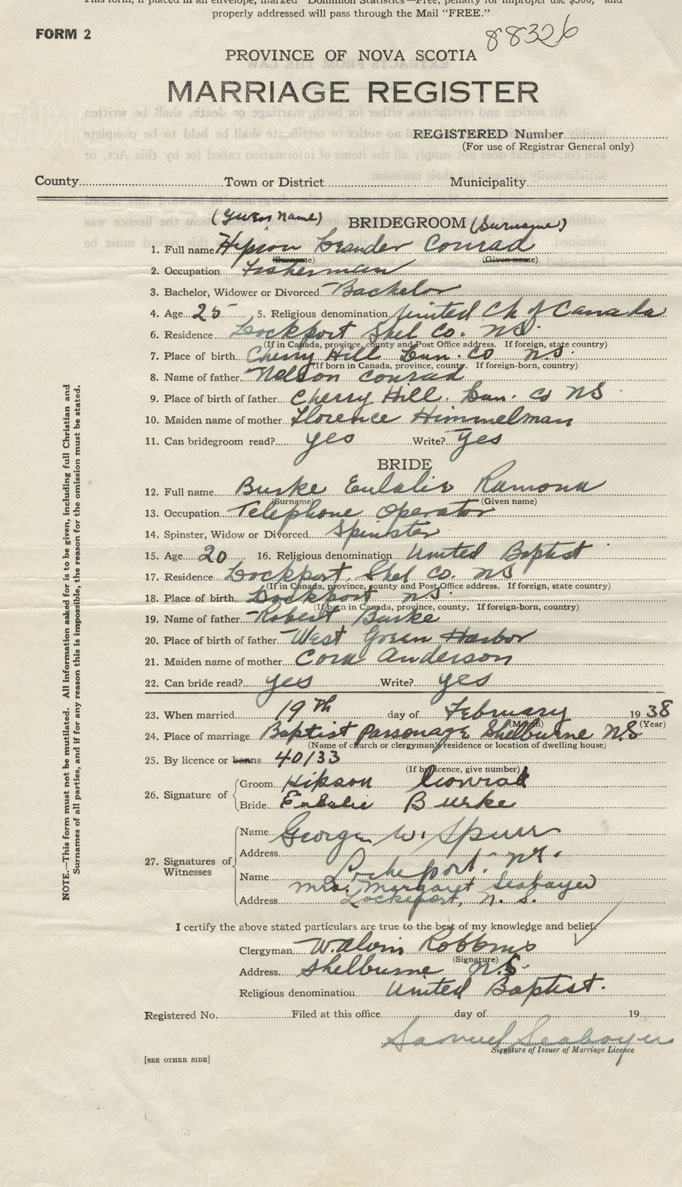 This form, if placed in an envelope, marked "Dominion Statistics—Free, penalty for improper use $300," and
properly addressed will pass through the Mail "FREE."
FORM 2
88326
PROVINCE OF NOVA SCOTIA
MARRIAGE REGISTER
REGISTERED Number
(For use of Registrar General only)
County Town or District Municipality
(Given name) BRIDEGROOM (Surname)
1. Full name Hipson Leander Conrad
(Surname) (Given name)
2. Occupation Fisherman
3. Bachelor, Widower or Divorced Bachelor
4. Age 25 5. Religious denomination United Ch of Canada
6. Residence Lockport Shel Co. NS.
(If in Canada, province, county and Post Office address. If foreign, state country)
7. Place of birth Cherry Hill Lun. Co NS.
(If born in Canada, province, county. If foreign-born, country)
8. Name of father Nelson Conrad
9. Place of birth of father Cherry Hill. Lun. Co NS
10. Maiden name of mother Florence Himmelman
11. Can bridegroom read? yes Write? yes
BRIDE
12. Full name Burke Eulalie Ramona
(Surname) (Given name)
13. Occupation Telephone Operator
14. Spinster, Widow or Divorced Spinster
15. Age 20 16. Religious denomination United Baptist
17. Residence Lockport. Shel Co. NS
(If in Canada, province, county and Post Office address. If foreign, state country)
18. Place of birth Lockport NS.
(If born in Canada, province, county. If foreign-born, country)
19. Name of father Robert Burke
20. Place of birth of father West Green Harbor
21. Maiden name of mother Cora Anderson
22. Can bride read? yes Write? yes
23. When married 19th day of February 1938
(Month) (Year)
24. Place of marriage Baptist Parsonage Shelburne N.S.
(Name of church or clergyman's residence or location of dwelling house)
25. By licence or banns 40133
(If by licence, give number)
26. Signature of Groom Hipson Conrad
Bride Eulalie Burke
27. Signatures of Witnesses
Name George W. Spurr
Address Lockeport, NS.
Name Mrs. Margaret Seaboyer
Address Lockeport, N. S.
I certify the above stated particulars are true to the best of my knowledge and belief.
Clergyman W. Alvin Robbins
(Signature)
Address Shelburne N.S.
Religious denomination United Baptist.
Registered No. Filed at this office day of 19
Samuel Seaboyer
Signature of Issuer of Marriage Licence
[SEE OTHER SIDE]
NOTE.—This form must not be mutilated. All information asked for is to be given, including full Christian and
Surnames of all parties, and if for any reason this is impossible, the reason for the omission must be stated.